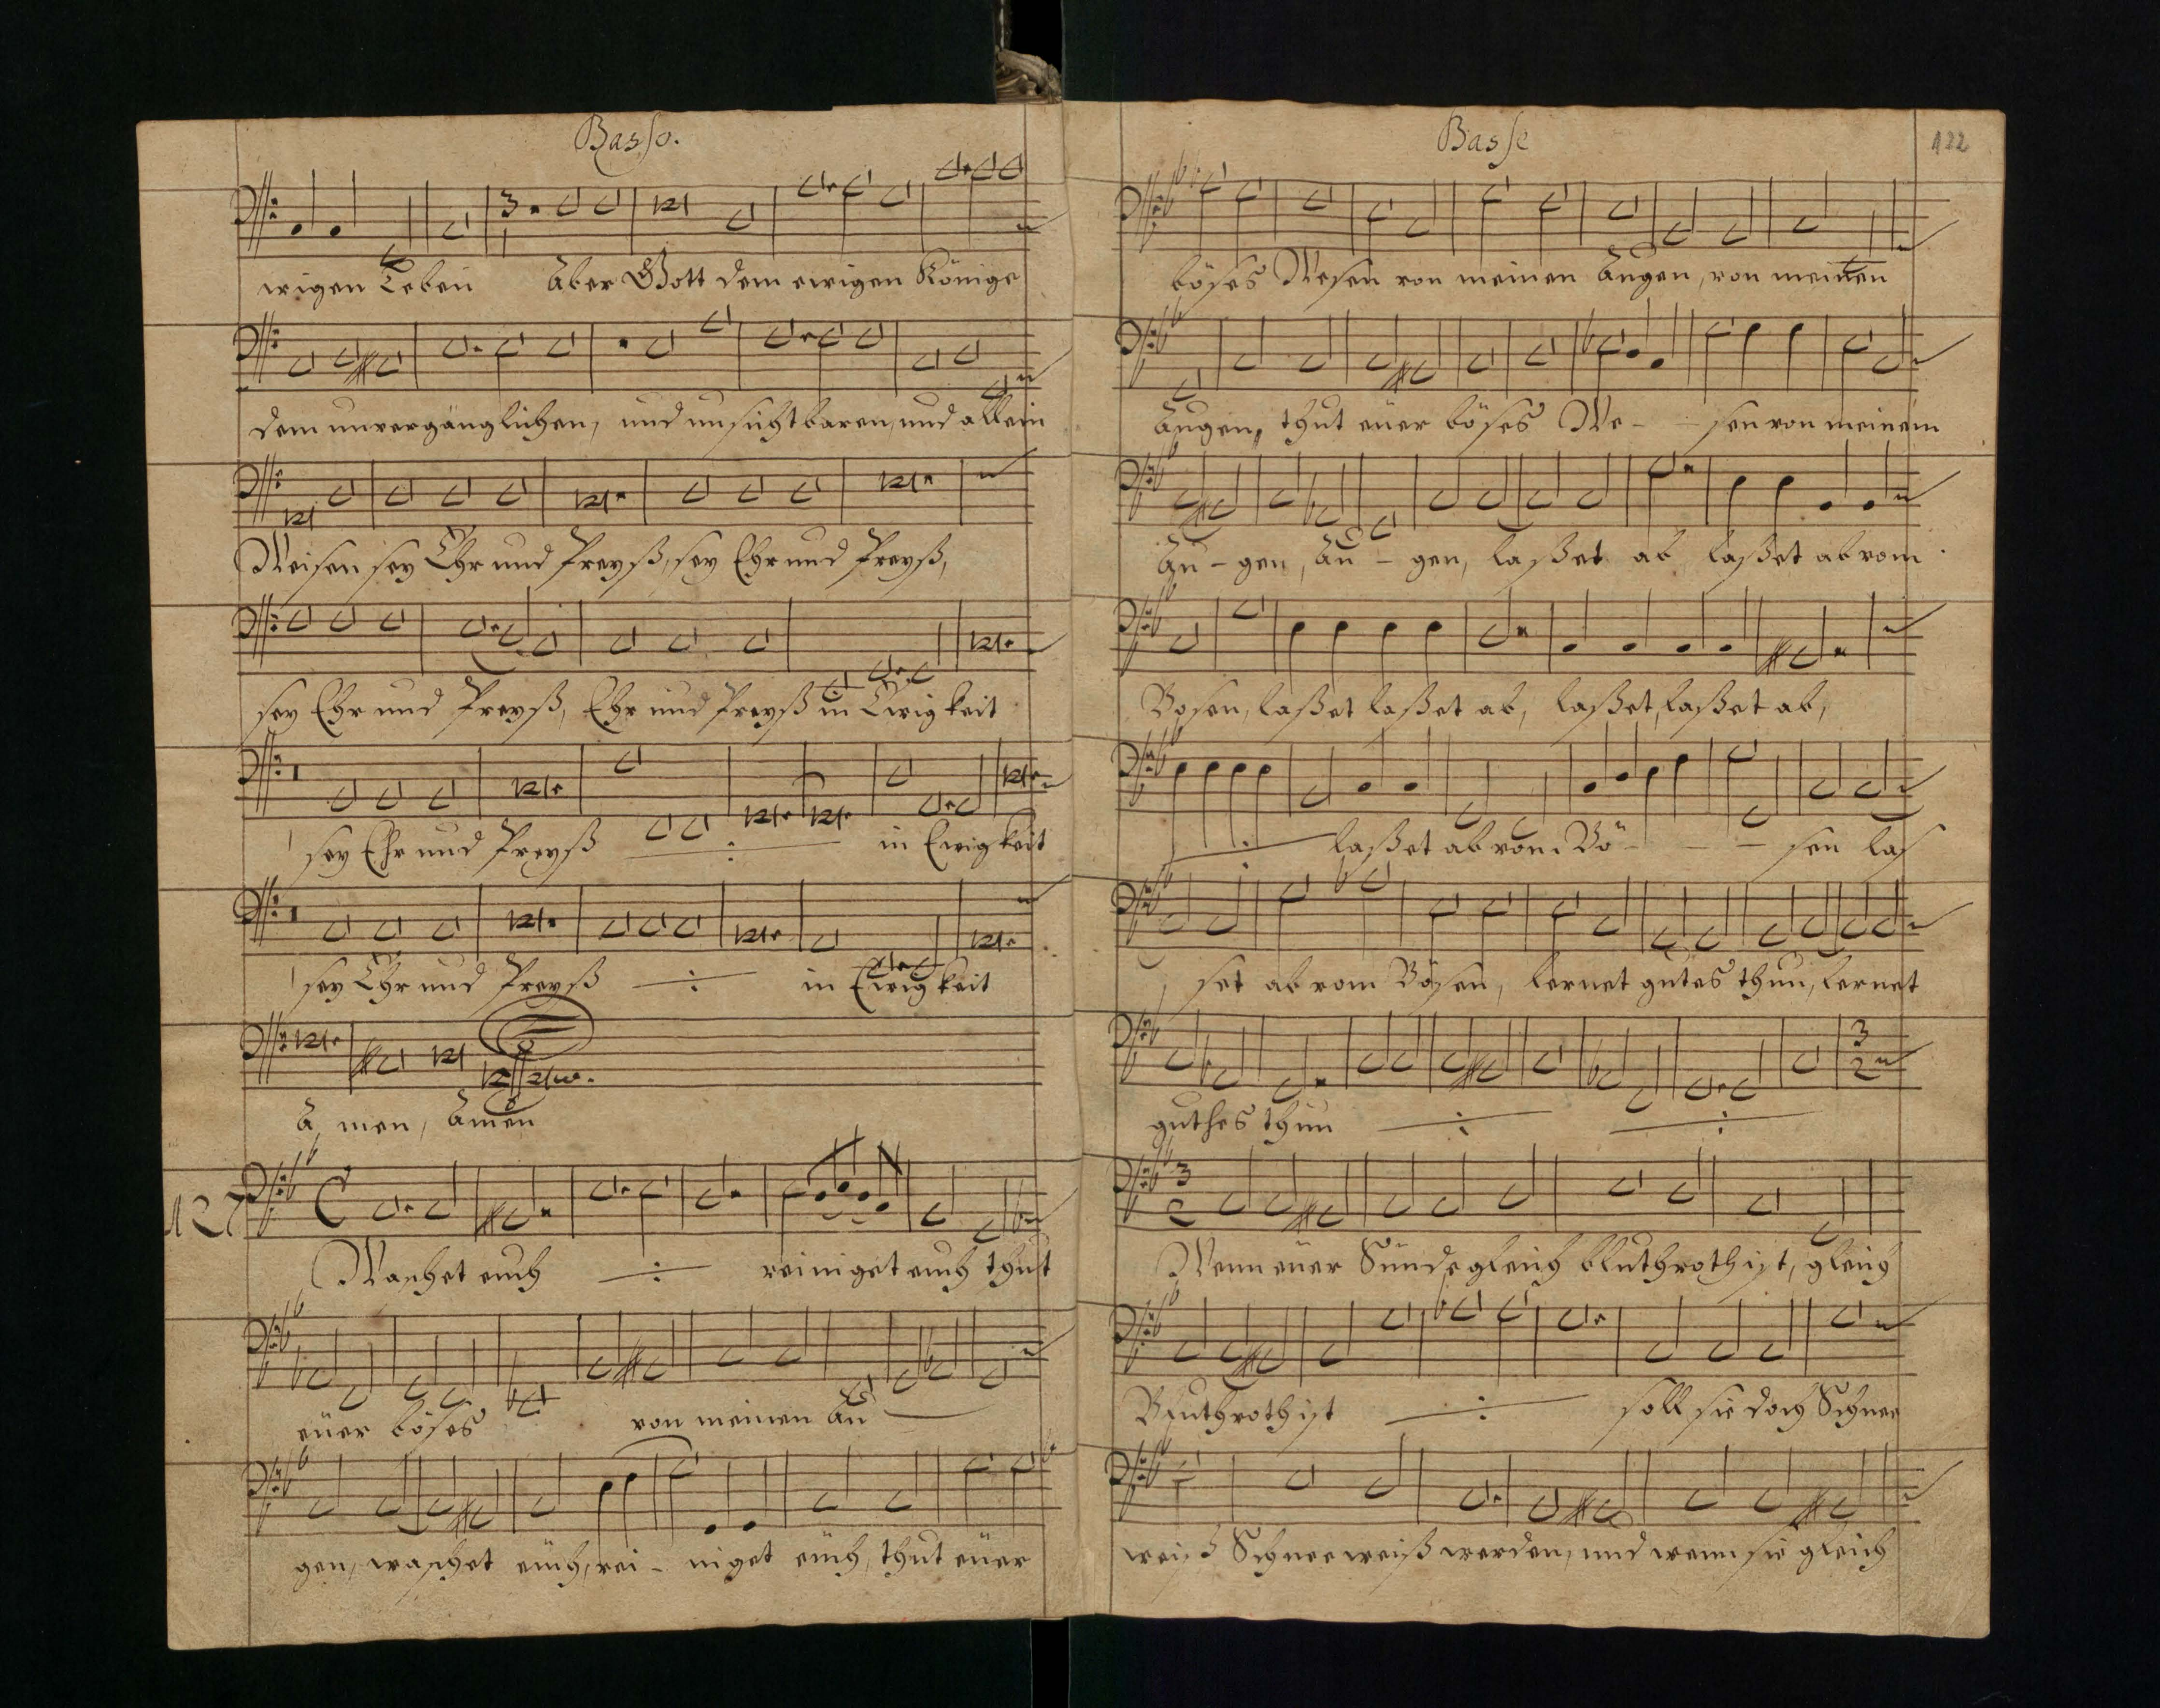 Basso.
ewigen Leben Aber Gott dem ewigen Könige
dem unvergänglichen, und unsichtbaren, und allein
Weisen sey Ehr und Preyß, sey Ehr und Preyß,
sey Ehr und Preyß, Ehr und Preyß in Ewigkeit
sey Ehr und Preyß ÷ in Ewigkeit
sey Ehr und Preyß ÷ in Ewigkeit
A men, Amen
127
Waschet euch ÷ reiniget euch thut
euer böses von meinen Au
gen, waschet euch, rei - niget euch, thut euer
Basse
122
böses Wesen von meinen Augen, von meinen
Augen, thut euer böses We - - sen von meinem
Au - gen, Au - gen, laßet ab laßet ab vom
Bosen, laßet laßet ab, laßet, laßet ab,
÷ laßet ab vom Bö - - - sen las
set ab vom Bösen, lernet gutes thun, lernet
guthes thun ÷ ÷
Wenn euer Sünde gleich bluthroth ist, gleich
Bluthroth ist ÷ soll sie doch Schnee
weiß Schneeweiß werden, und wenn sie gleich